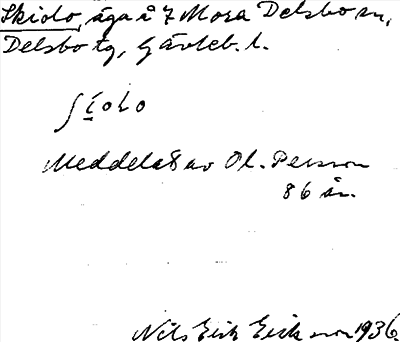 Skido, äga å 7 Mora Delsbo sn,
Delsbo tg, Gävleb. l.
ʃíolo
Meddelat av Ol. Persson
86 år.
Nils Erik Eriksson 1936.